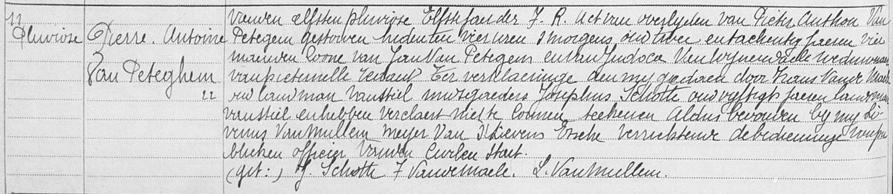 11
Pluviose
Pierre. Antoine
Van Peteghem
22
Vanden elfsten pluviose Elfste jaer der F. R. Act van overlyden van Pieter Anthon Van
Petegem gestorven hedenten vier uren smorgens, oud een entachentig jaeren vier
maenden Soone van Jan Van Petegem en van Judoca Van Wynendaele weduwenaer
van pieternelle Ter verklaeringe aen my gedaen door Frans Vande Maele
oud landman van stiel mitsgaeders Josephus Schotte oud vyftigh jaeren landsman
van stiel en hebben verclaert niet te connen teekenen Aldus bevonden by my Li
vinus VanMullem meyer Van St Lievens Essche verrichtende de bedieninge van pu
blieken officier vanden Civilen Staet.
(get:) J. Schotte F Vandemaele. L. VanMullem.